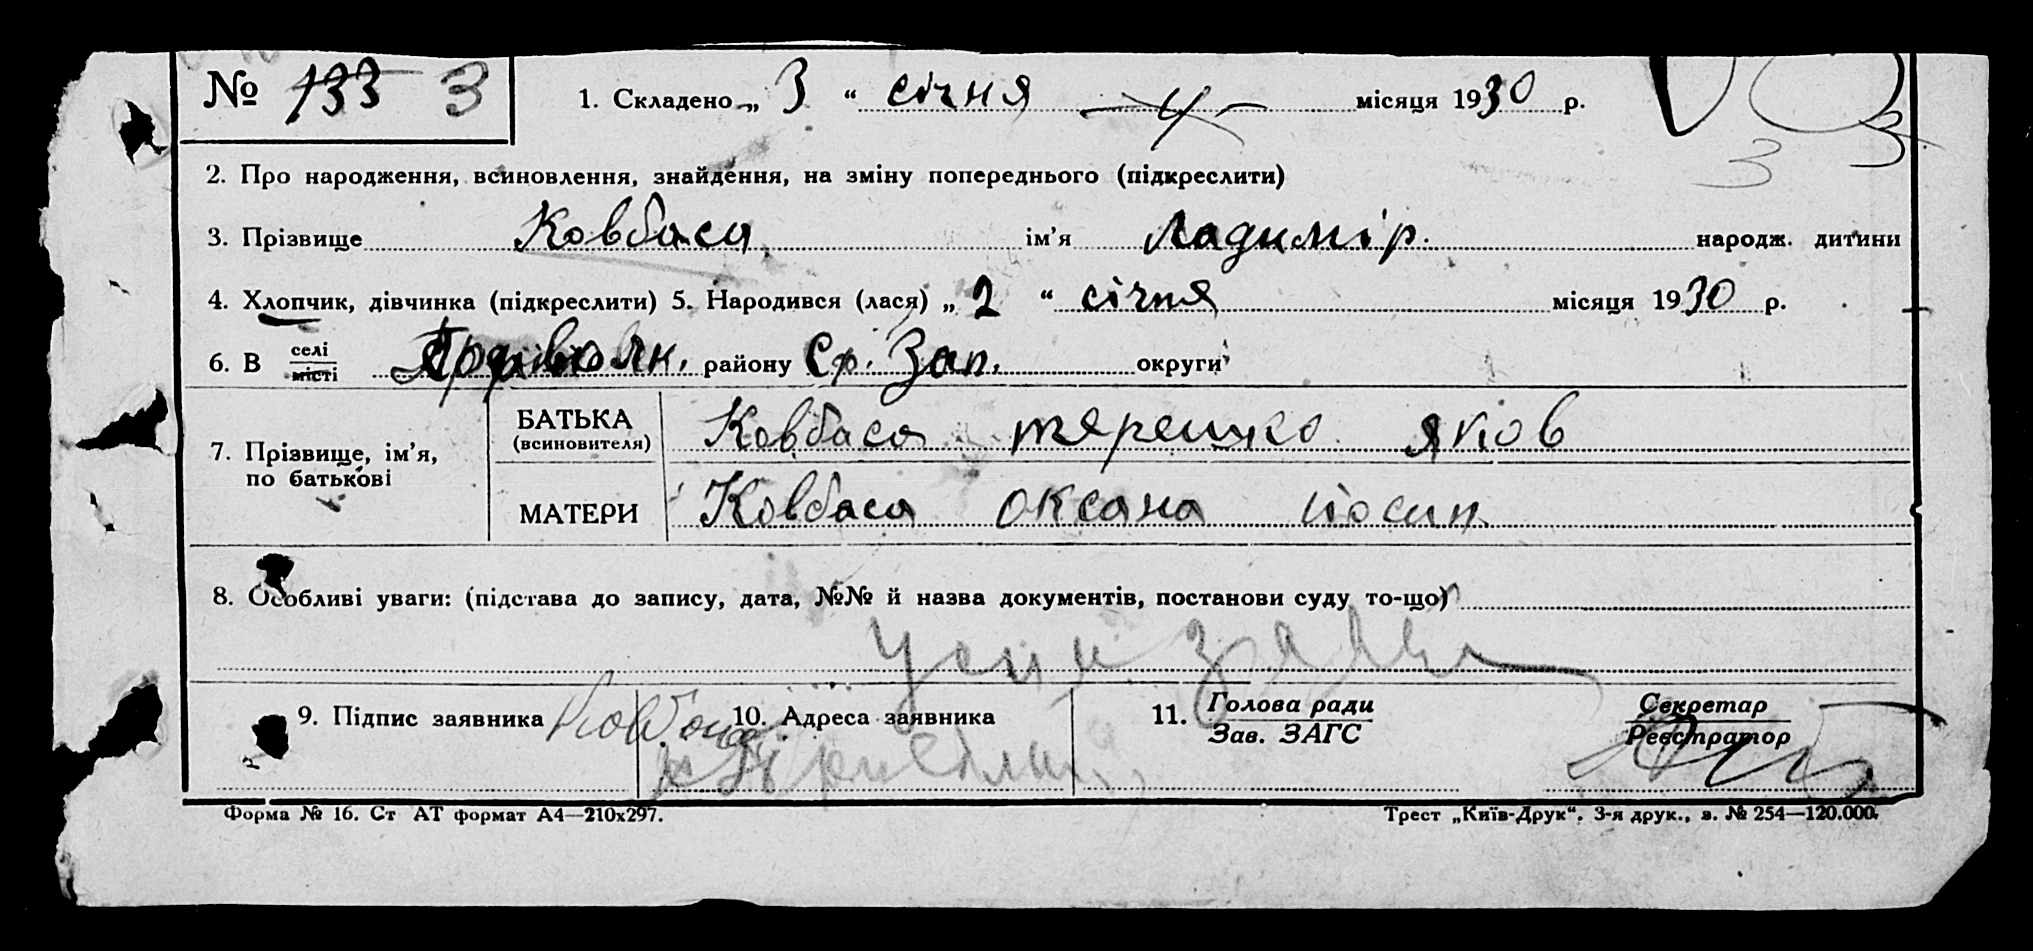 № 133 3 1. Складено „ 3 “ січня місяця 1930 р. 3 3
2. Про народження, всиновлення, знайдення, на зміну попереднього (підкреслити)
3. Прізвище Ковбаса ім’я Ладимір. народж. дитини
4. Хлопчик, дівчинка (підкреслити) 5. Народився (лася) „ 2 “ січня місяця 1930 р.
6. В селі місті району Ср. Зап. округи
7. Прізвище, ім’я, по батькові
БАТЬКА (всиновителя) Ковбаса терешко яков
МАТЕРИ Ковбаса оксана йосип
8. Особливі уваги: (підстава до запису, дата, №№ й назва документів, постанови суду то-що)
Усна заява
9. Підпис заявника 10. Адреса заявника 11. Голова ради Секретар
Зав. ЗАГС Реєстратор
Форма № 16. Ст АТ формат А4—210х297. Трест „Київ-Друк“. 3-я друк., з. № 254—120.000.